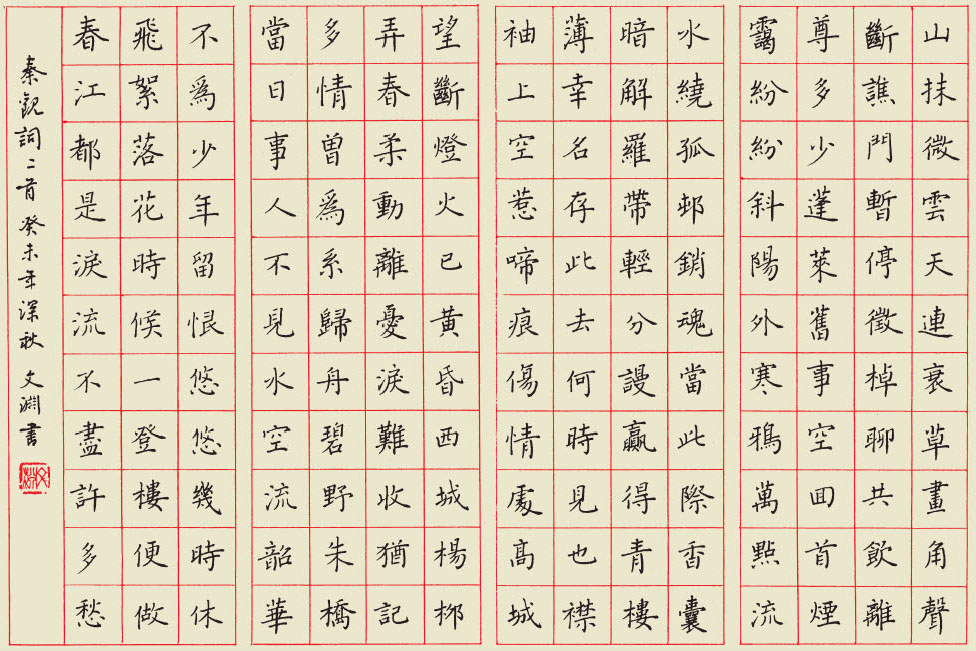 山抹微雲天連衰草畫角聲
斷譙門暫停徵棹聊共飲離
尊多少蓬萊舊事空囬首煙
靄紛紛斜陽外寒鴉萬點流
水繞孤邨銷魂當此際香囊
暗解羅帶輕分謾贏得青樓
薄幸名存此去何時見也襟
袖上空惹啼痕傷情處高城
望斷燈火已黃昏西城楊柳
弄春柔動離憂淚難收猶記
多情曾爲系歸舟碧野朱橋
當日事人不見水空流韶華
不爲少年留恨悠悠幾時休
飛絮落花時候一登樓便做
春江都是淚流不盡許多愁
秦觀詞二首 癸未年深秋 文淵書